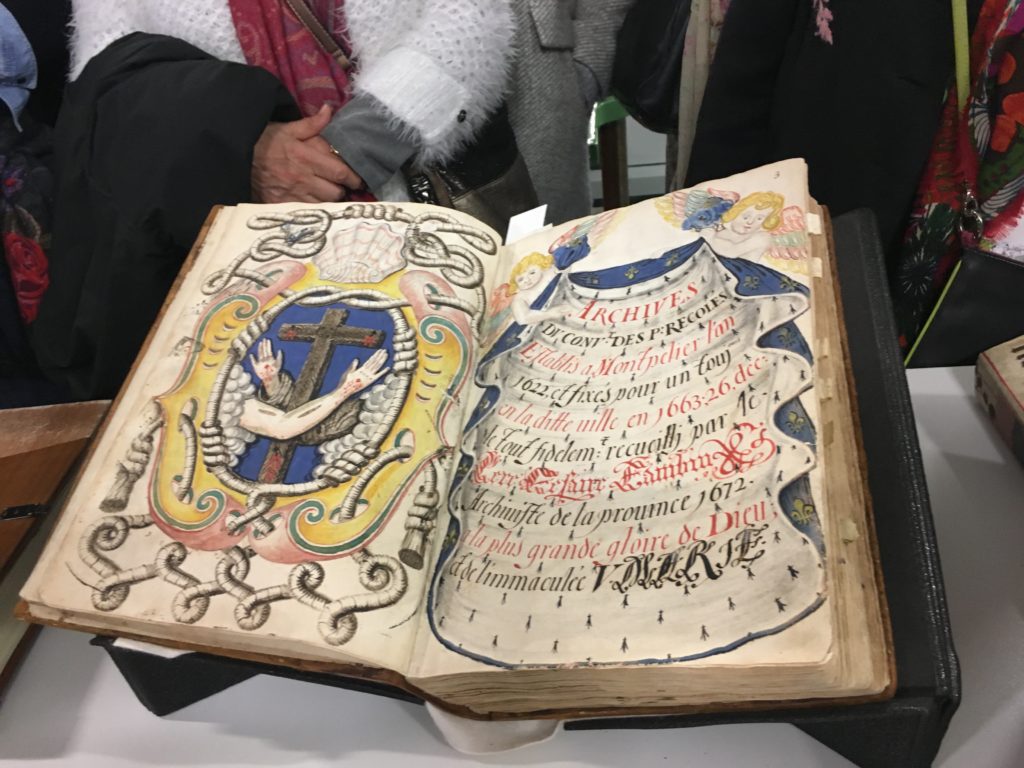 3
ARCHIVES
DU CONVᵗ. DES Pᵖ. RECOLES
Establis a Montpelier l'an
1622. et fixés pour un touj
en la ditte ville en 1663. 26. dec.
le tout fidelem:ᵗ recueilli par le
Pere Cesaire Cambin
Archiviste de la province 1672.
a la plus grande gloire de Dieu,
et de l'immaculée V. MARIE